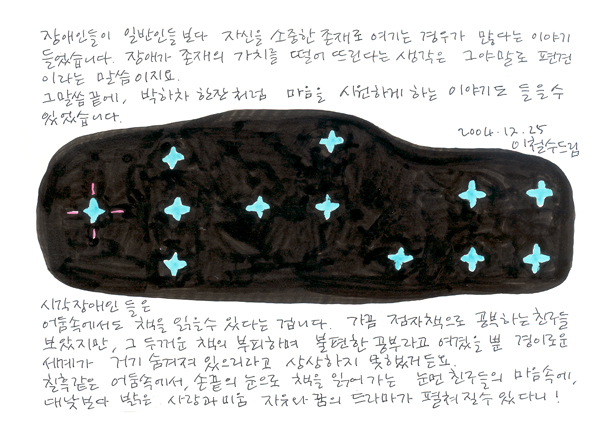 장애인들이 일반인들보다 자신을 소중한 존재로 여기는 경우가 많다는 이야기
들었습니다. 장애가 존재의 가치를 떨어 뜨린다는 생각은 그야말로 편견
이라는 말씀이지요.
그말씀 끝에, 박하차 한잔처럼 마음을 시원하게 하는 이야기도 들을수
있었습니다.
2004.12.25
이철수드림
시각장애인 들은
어둠속에서도 책을 읽을수 있다는 겁니다. 가끔 점자책으로 공부하는친구들
보았지만, 그 두꺼운 책의 부피하며 불편한 공부라고 여겼을 뿐 경이로운
세계가 거기 숨겨져 있으리라고 상상하지 못했거든요.
칠흑같은 어둠속에서, 손끝의 눈으로 책을 읽어가는 눈먼 친구들의 마음속에,
대낮보다 밝은 사랑과미움 자유와 꿈의 드라마가 펼쳐질수 있다니!